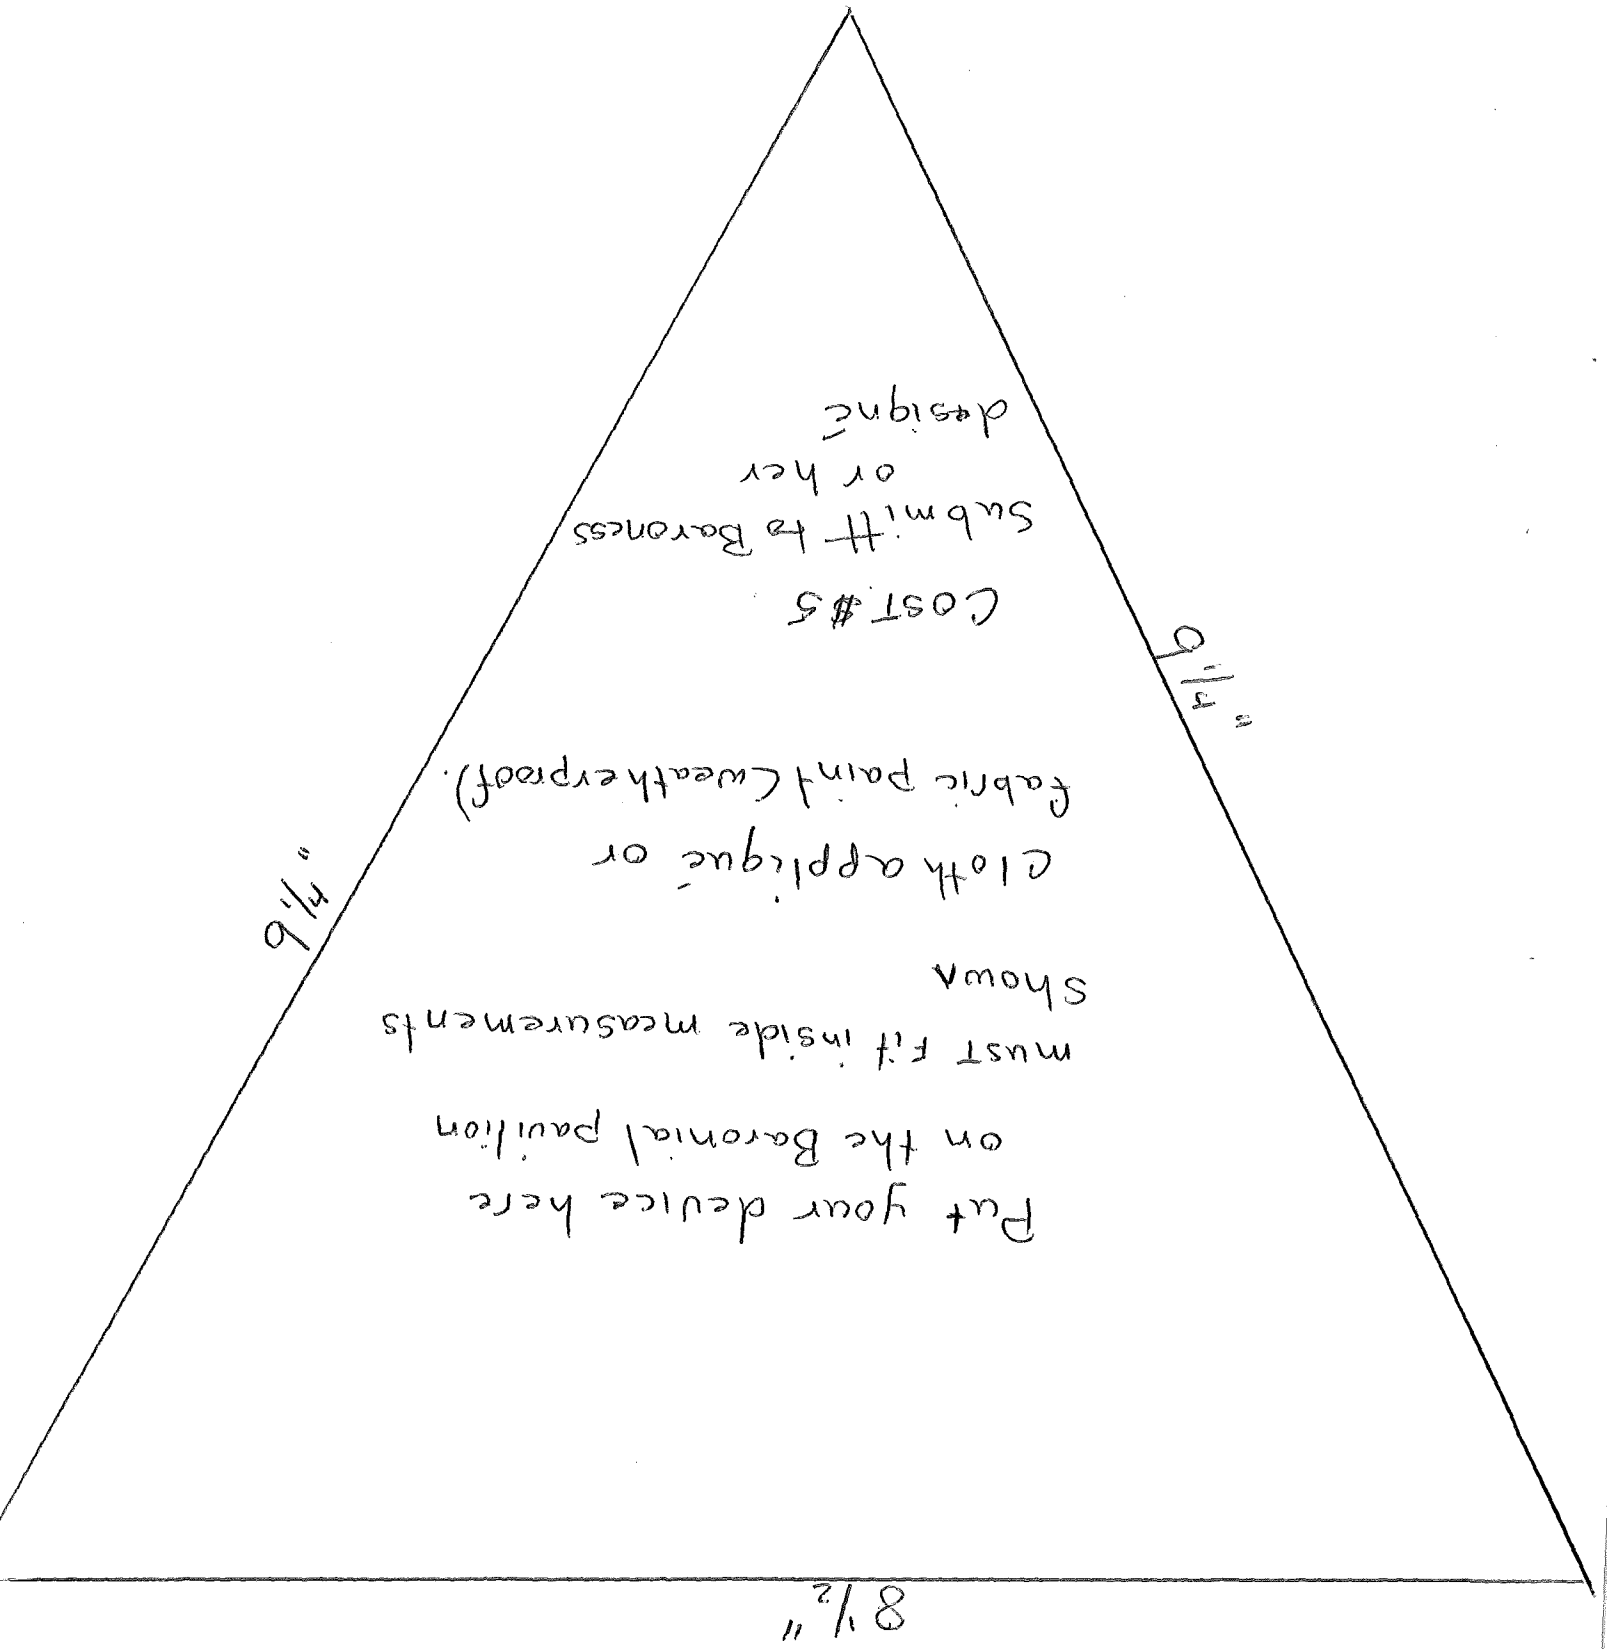 8 1/2"
Put your device here
on the Baronial pavilion
must Fit inside measurements
Shown
Cloth appliqué or
fabric paint (weatherproof).
COST $5
Submitt to Baroness
or her
designé
9 1/4"
9 1/4"